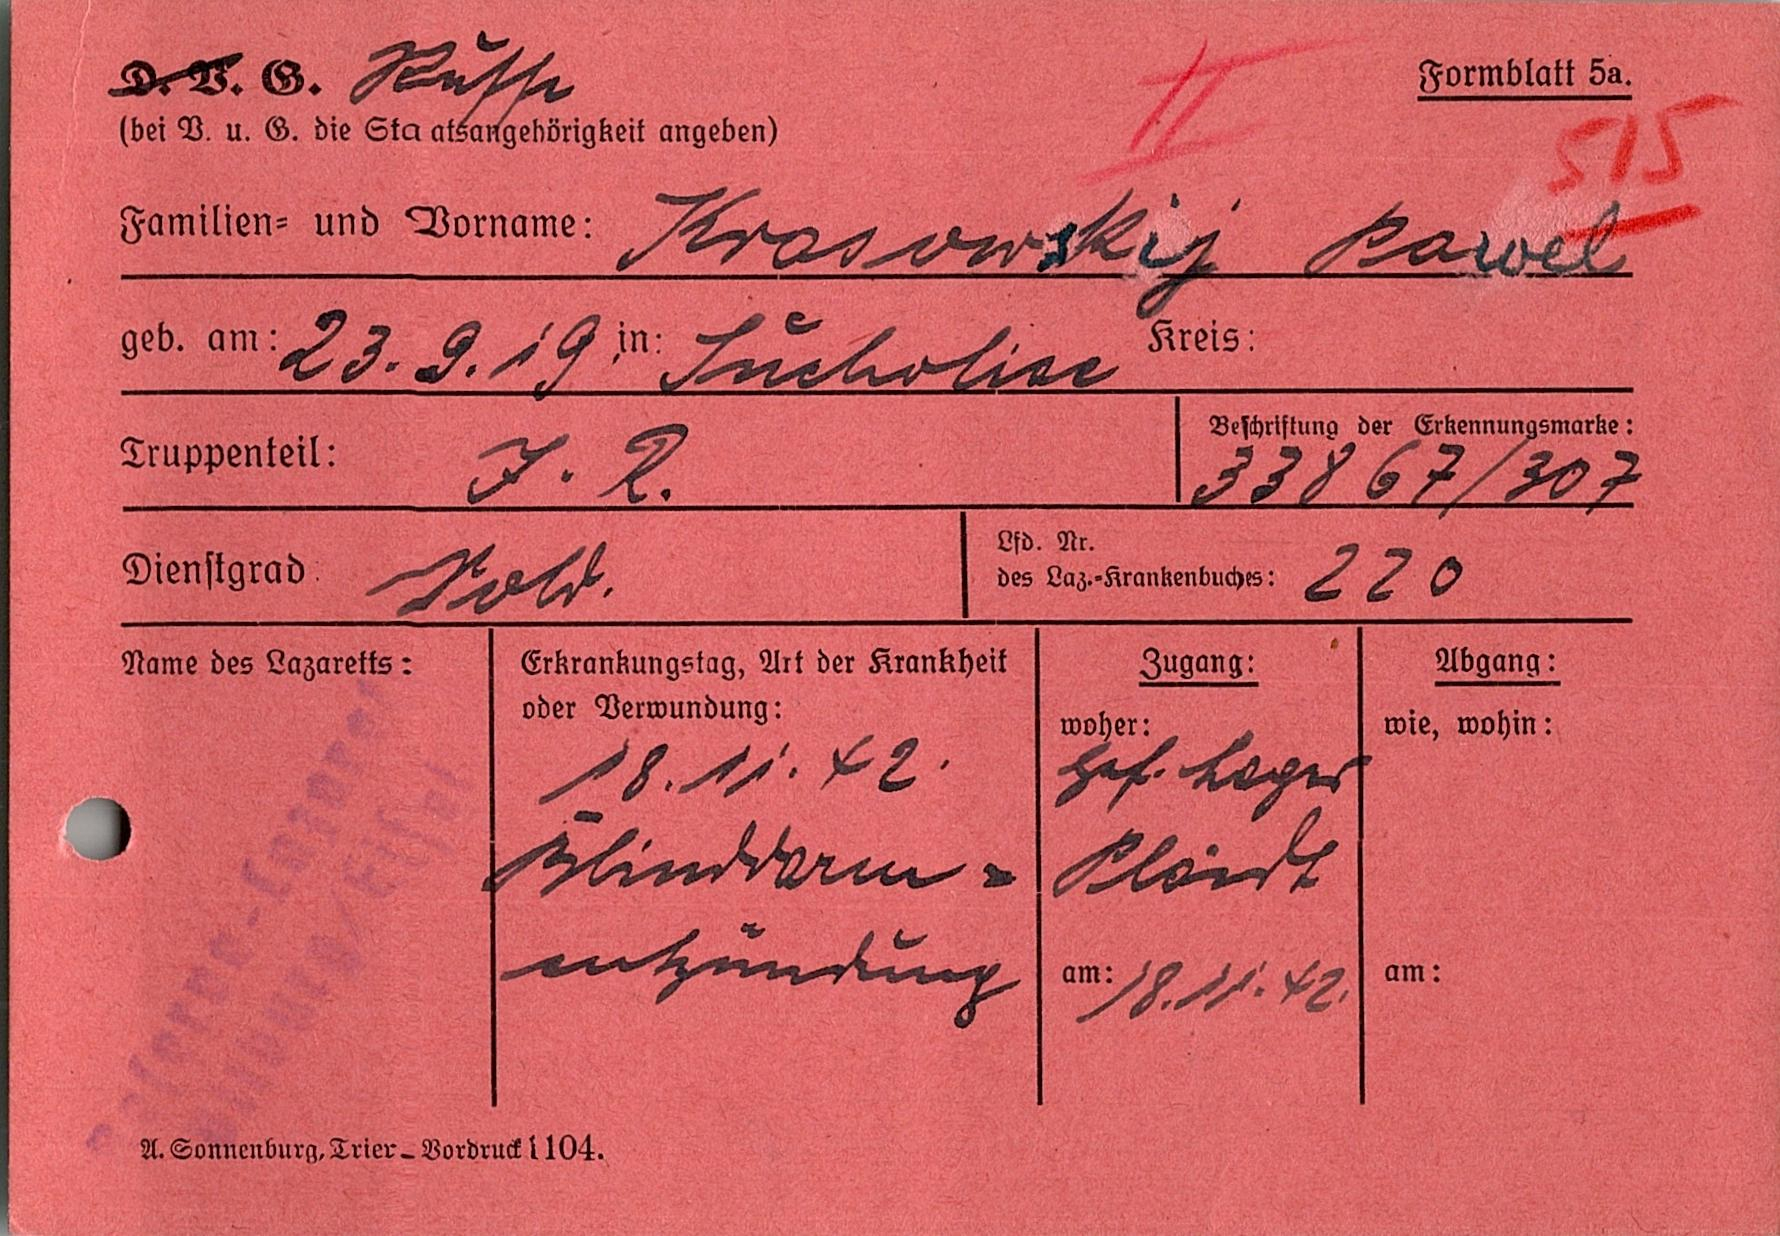 D. V. G. Russe
Formblatt 5a.
(bei V. u. G. die Staatsangehörigkeit angeben)
II
515
Familien= und Vorname: Krasowskij Pawel
geb. am: 23.9.19 in: Sucholise Kreis:
Truppenteil: J. R.
Beschriftung der Erkennungsmarke:
33867/307
Dienstgrad Sold.
Lfd. Nr.
des Laz.-Krankenbuches: 220
Name des Lazaretts:
Erkrankungstag, Art der Krankheit
oder Verwundung:
18.11.42.
Blinddarm=
entzündung
Zugang:
woher:
Gef. Lager
Plaidt
am: 18.11.42.
Abgang:
wie, wohin:
am:
Reserve-Lazarett
A. Sonnenburg, Trier - Vordruck 1104.